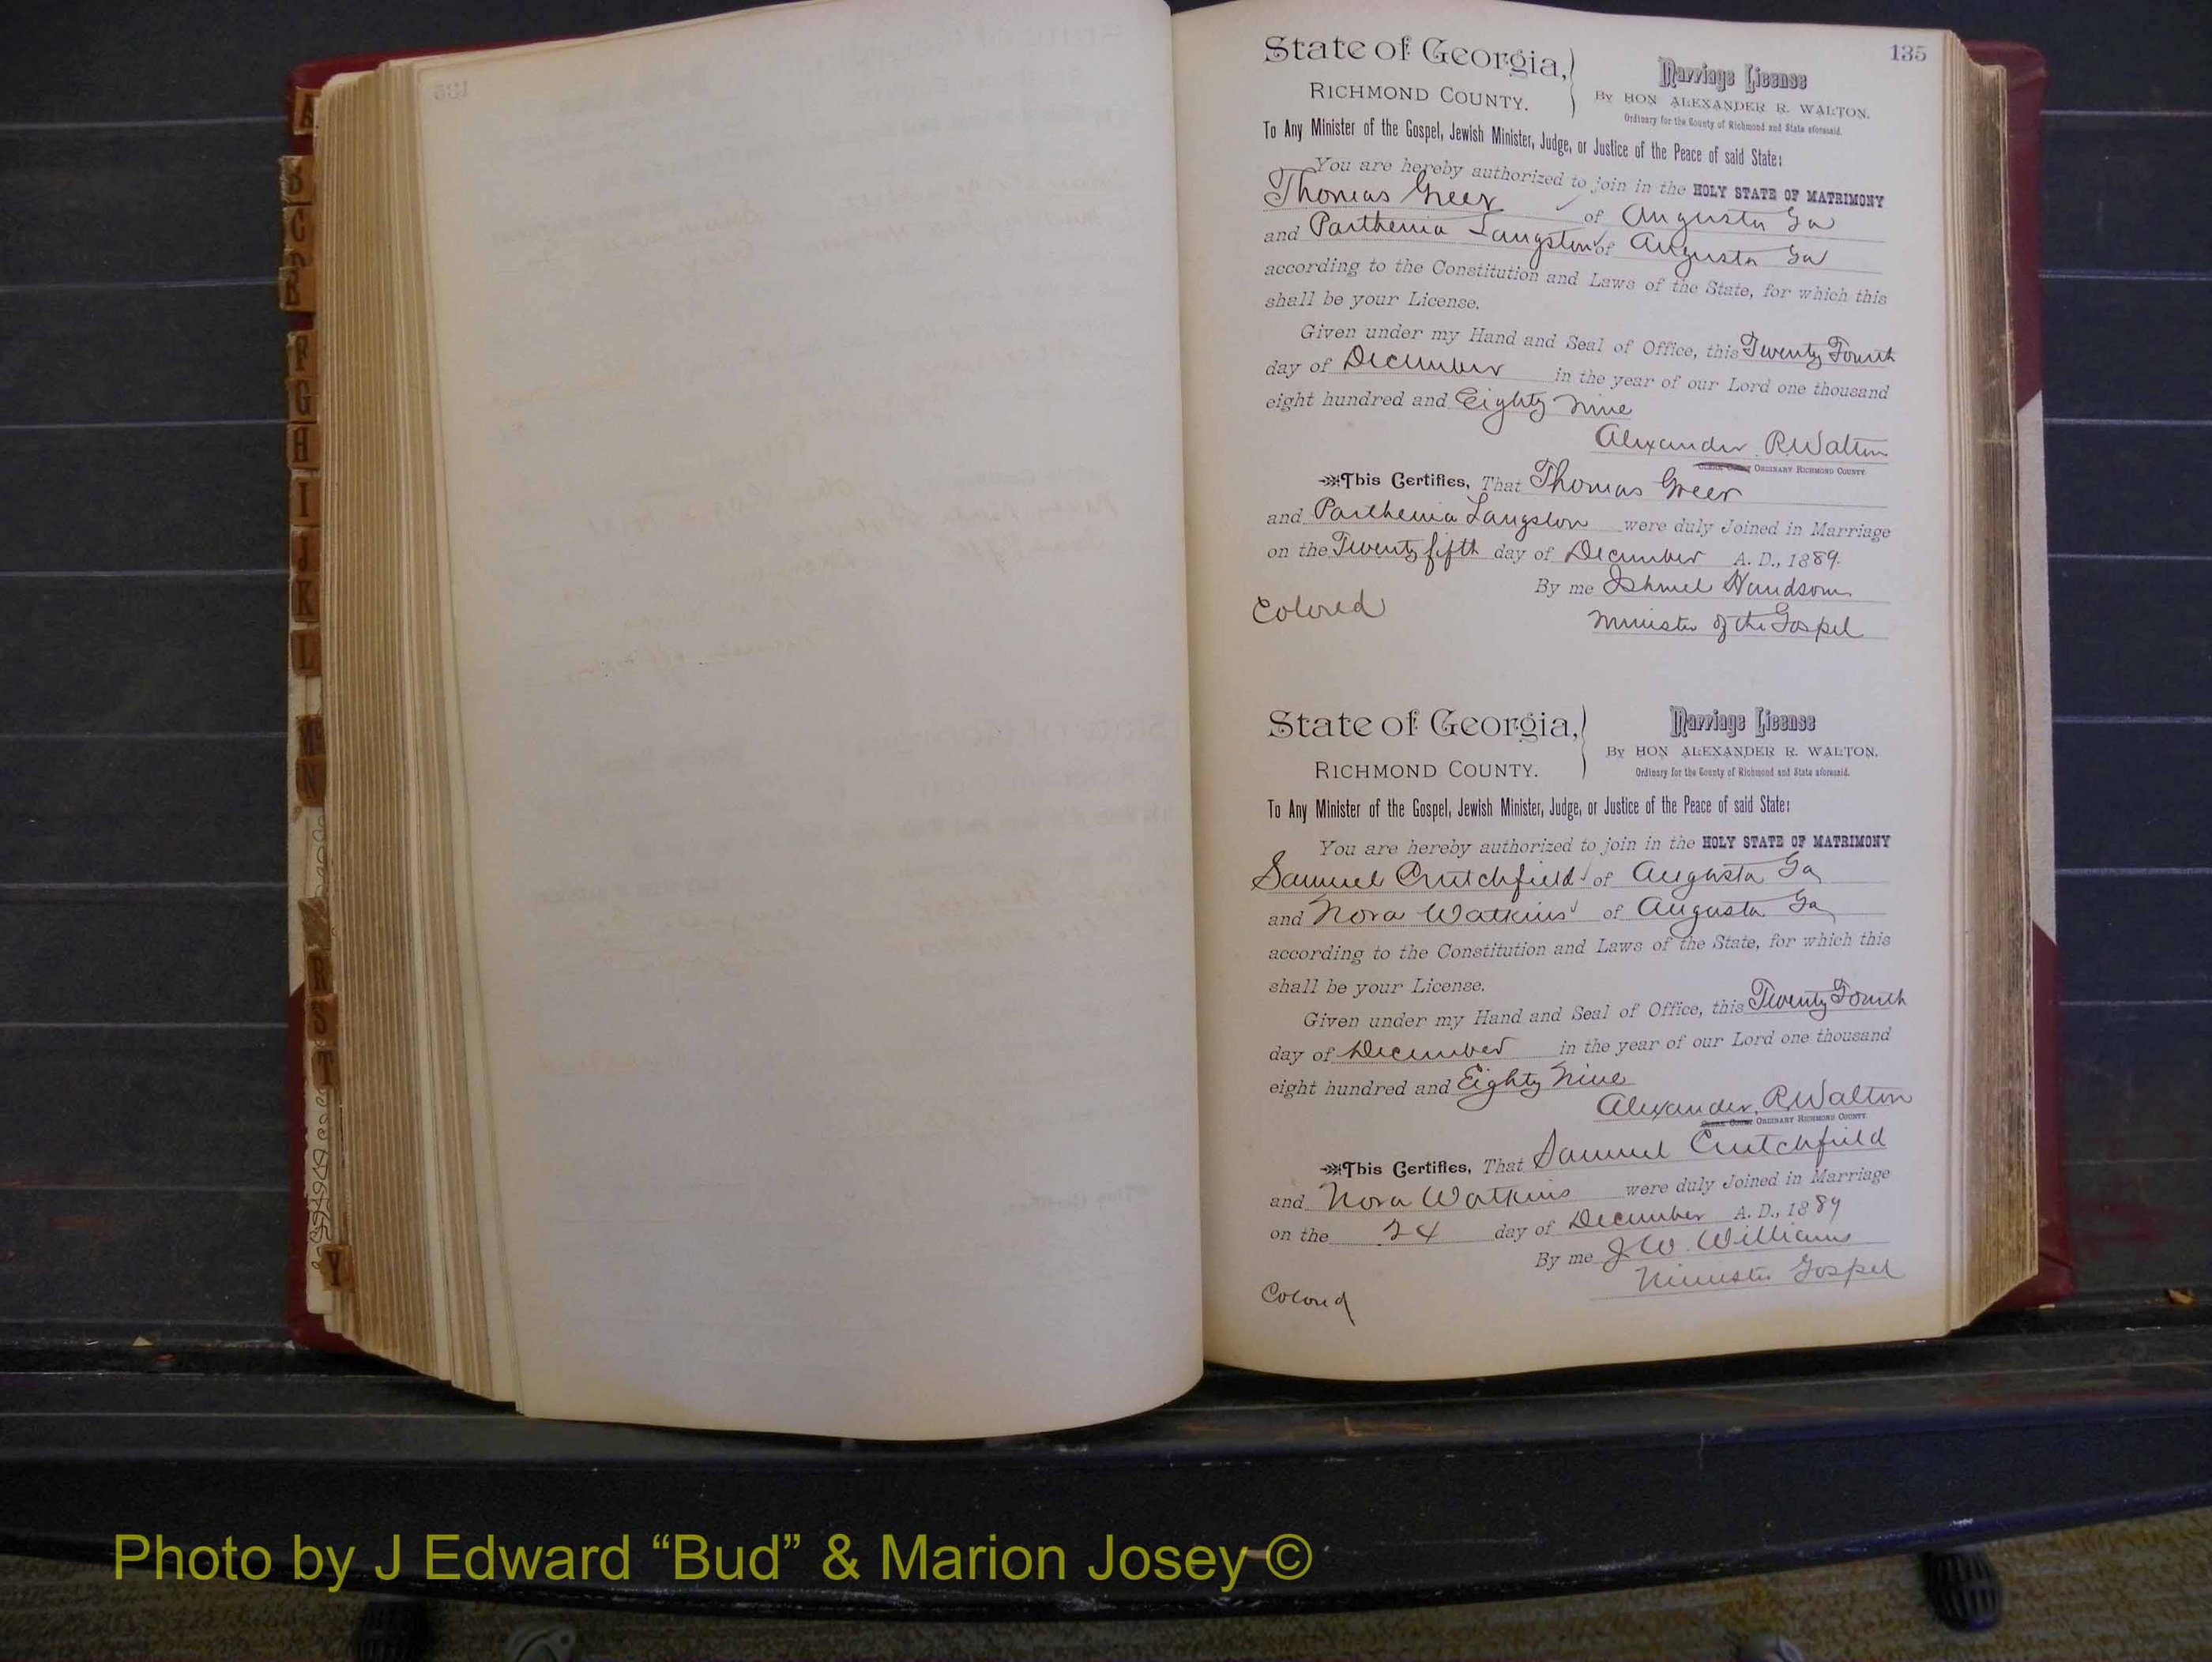 135
State of Georgia,
RICHMOND COUNTY.
Marriage License
By HON ALEXANDER R. WALTON.
Ordinary for the County of Richmond and State aforesaid.
To Any Minister of the Gospel, Jewish Minister, Judge, or Justice of the Peace of said State:
You are hereby authorized to join in the HOLY STATE OF MATRIMONY
Thomas Greer of Augusta Ga
and Parthenia Langston of Augusta Ga
according to the Constitution and Laws of the State, for which this
shall be your License.
Given under my Hand and Seal of Office, this Twenty Fourth
day of December in the year of our Lord one thousand
eight hundred and Eighty Nine
Alexander R. Walton
ORDINARY RICHMOND COUNTY.
This Certifies, That Thomas Greer
and Parthenia Langston were duly Joined in Marriage
on the Twenty fifth day of December A. D., 1889.
By me Ishmel Handsom
Colored
Minister of the Gospel
State of Georgia,
RICHMOND COUNTY.
Marriage License
By HON ALEXANDER R. WALTON.
Ordinary for the County of Richmond and State aforesaid.
To Any Minister of the Gospel, Jewish Minister, Judge, or Justice of the Peace of said State:
You are hereby authorized to join in the HOLY STATE OF MATRIMONY
Samuel Crutchfield of Augusta Ga
and Nora Watkins of Augusta Ga
according to the Constitution and Laws of the State, for which this
shall be your License.
Given under my Hand and Seal of Office, this Twenty Fourth
day of December in the year of our Lord one thousand
eight hundred and Eighty Nine
Alexander R. Walton
ORDINARY RICHMOND COUNTY.
This Certifies, That Samuel Crutchfield
and Nora Watkins were duly Joined in Marriage
on the 24 day of December A. D., 1889
By me J W. Williams
Minister Gospel
Colored
A
B
C
D
F
G
H
I
J
K
L
Mc
N
R
S
T
Y
Photo by J Edward “Bud” & Marion Josey ©